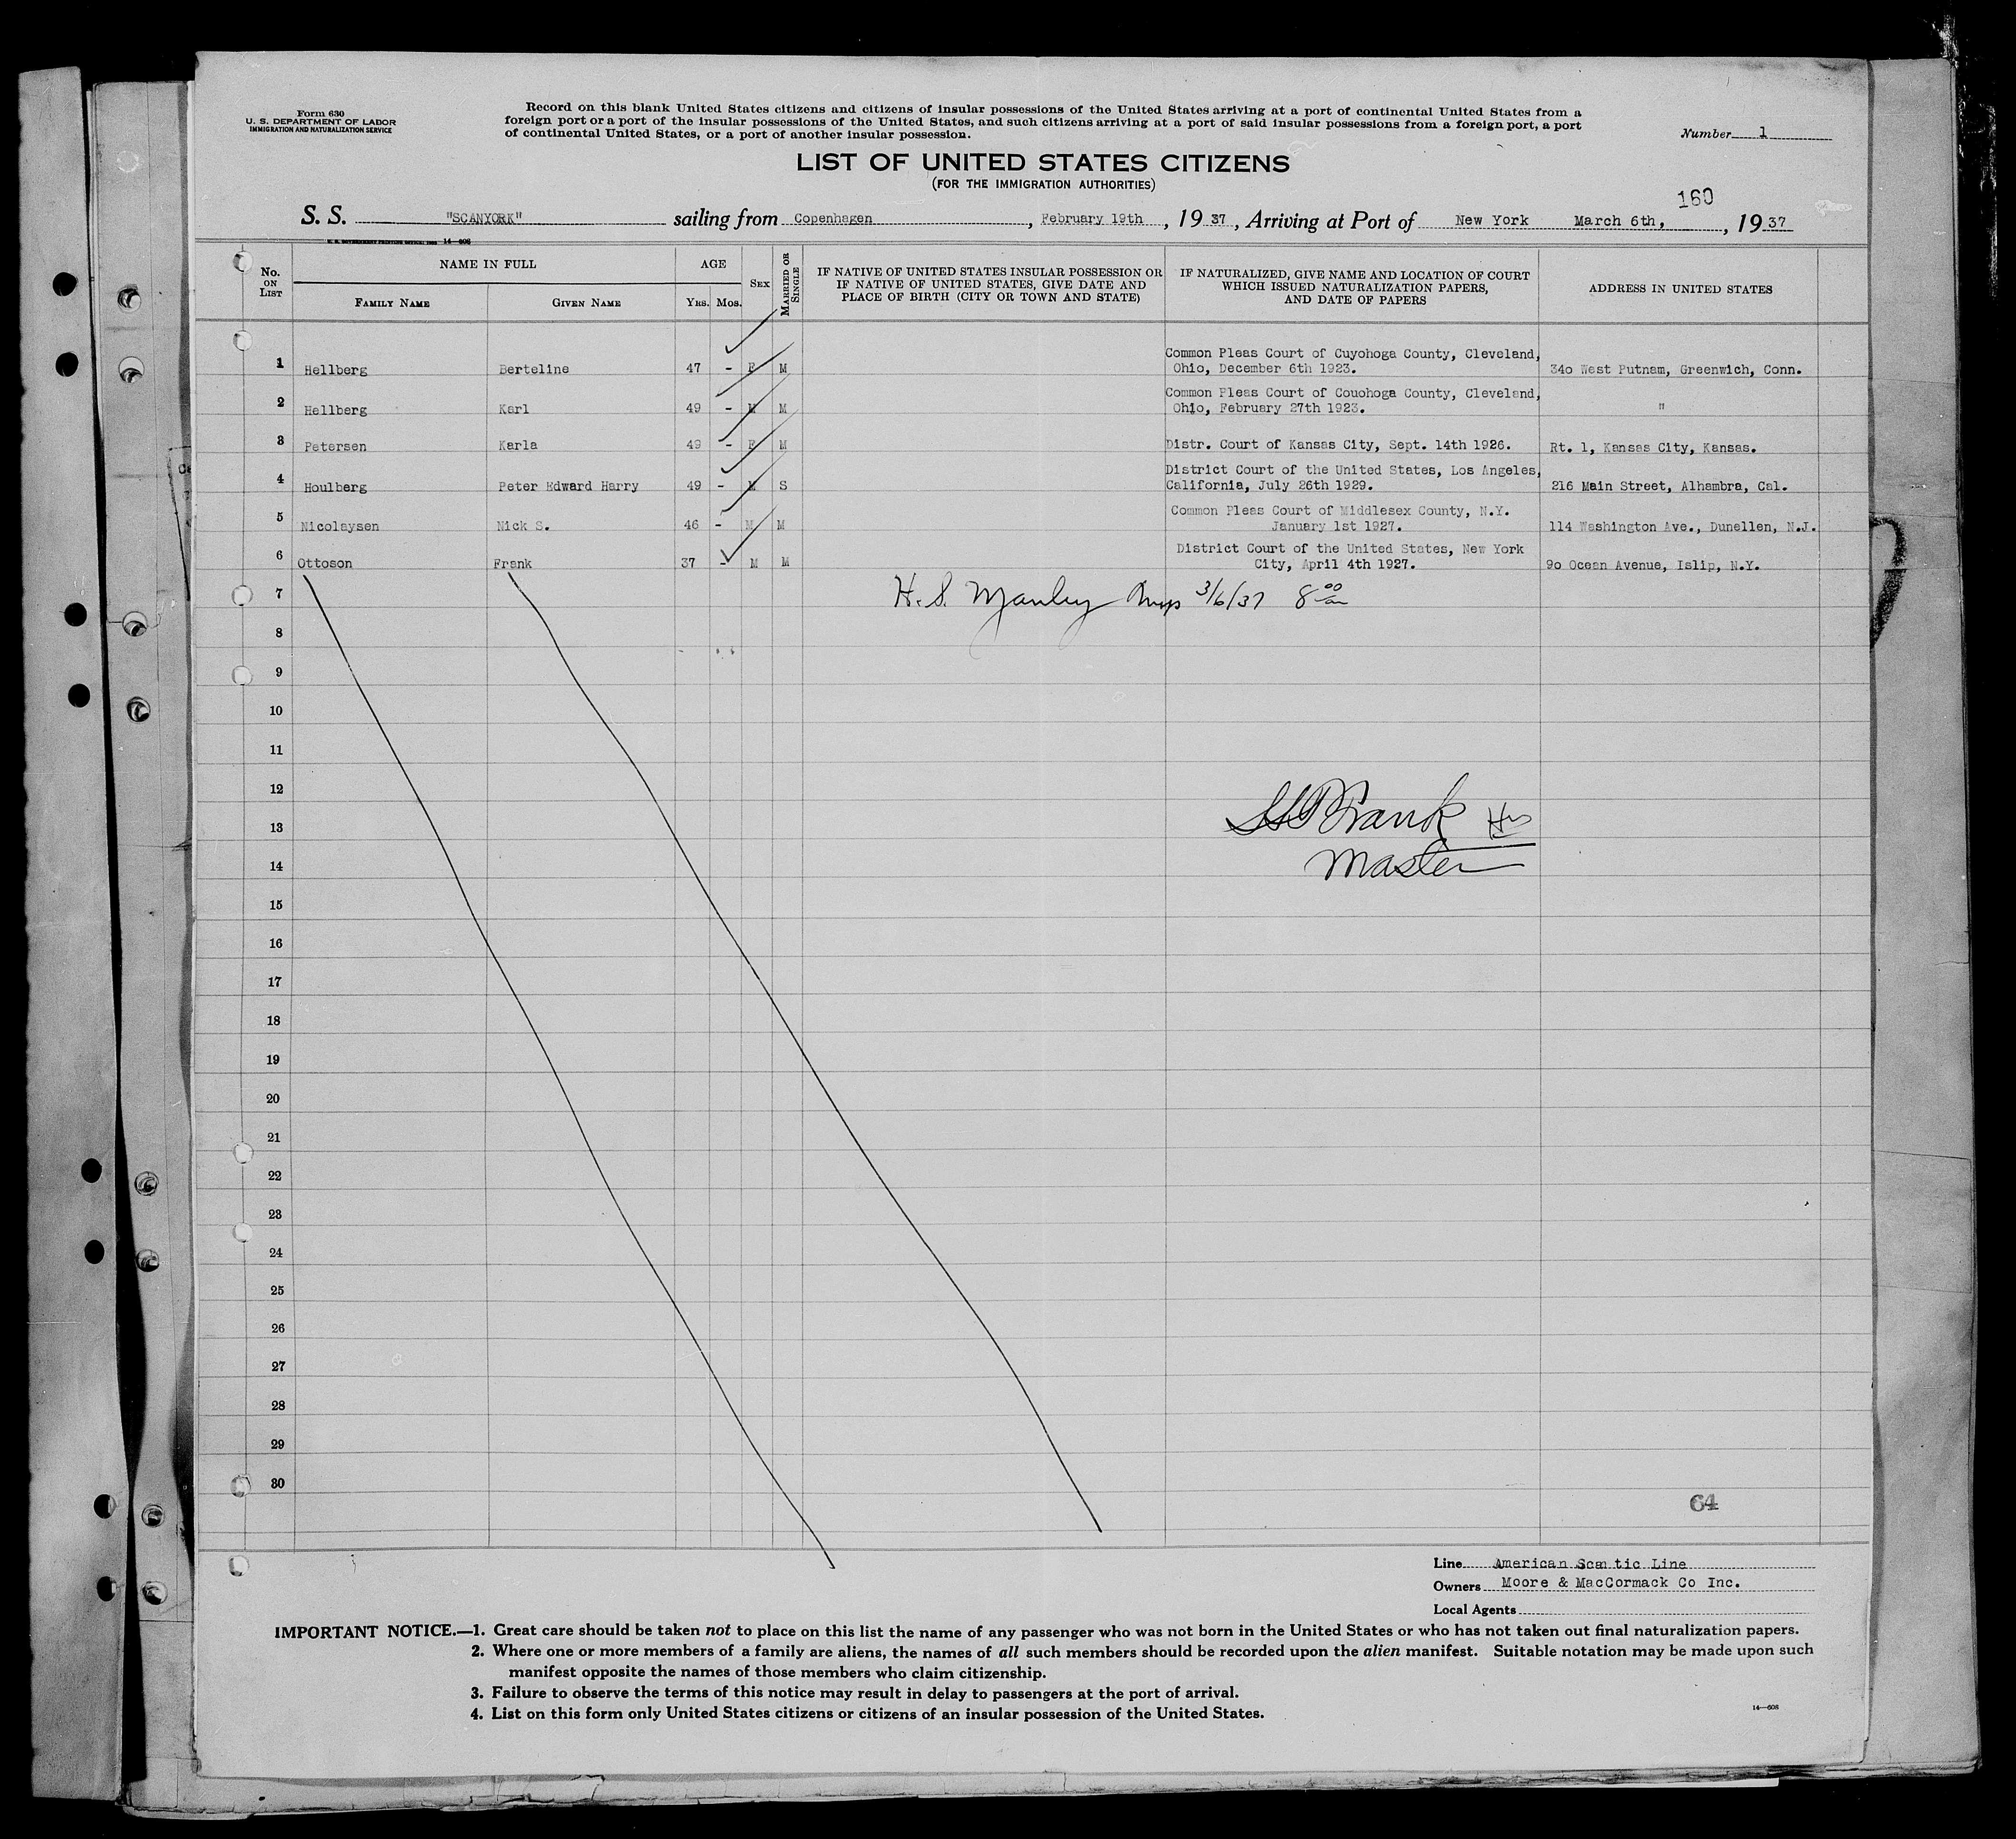 Form 630
U. S. DEPARTMENT OF LABOR
IMMIGRATION AND NATURALIZATION SERVICE
Record on this blank United States citizens and citizens of insular possessions of the United States arriving at a port of continental United States from a
foreign port or a port of the insular possessions of the United States, and such citizens arriving at a port of said insular possessions from a foreign port, a port
of continental United States, or a port of another insular possession.
Number 1
LIST OF UNITED STATES CITIZENS
(FOR THE IMMIGRATION AUTHORITIES)
160
S. S. "SCANYORK" sailing from Copenhagen, February 19th, 1937, Arriving at Port of New York March 6th, , 1937
14—608
No. ON LIST
NAME IN FULL
FAMILY NAME GIVEN NAME
AGE
YRS. MOS.
SEX
MARRIED OR SINGLE
IF NATIVE OF UNITED STATES INSULAR POSSESSION OR
IF NATIVE OF UNITED STATES, GIVE DATE AND
PLACE OF BIRTH (CITY OR TOWN AND STATE)
IF NATURALIZED, GIVE NAME AND LOCATION OF COURT
WHICH ISSUED NATURALIZATION PAPERS,
AND DATE OF PAPERS
ADDRESS IN UNITED STATES
Common Pleas Court of Cuyohoga County, Cleveland,
1 Hellberg Berteline 47 - F M Ohio, December 6th 1923. 340 West Putnam, Greenwich, Conn.
Common Pleas Court of Couohoga County, Cleveland,
2 Hellberg Karl 49 - M M Ohio, February 27th 1923. "
3 Petersen Karla 49 - F M Distr. Court of Kansas City, Sept. 14th 1926. Rt. 1, Kansas City, Kansas.
District Court of the United States, Los Angeles,
4 Houlberg Peter Edward Harry 49 - M S California, July 26th 1929. 216 Main Street, Alhambra, Cal.
Common Pleas Court of Middlesex County, N.Y.
5 Nicolaysen Nick S. 46 - M M January 1st 1927. 114 Washington Ave., Dunellen, N.J.
District Court of the United States, New York
6 Ottoson Frank 37 - M M City, April 4th 1927. 90 Ocean Avenue, Islip, N.Y.
7 H. S. Manley 3/6/37 8 00
8
9
10
11
12
13 Frank
14 Master
15
16
17
18
19
20
21
22
23
24
25
26
27
28
29
30
64
Line American Scantic Line
Owners Moore & MacCormack Co Inc.
Local Agents
IMPORTANT NOTICE.—1. Great care should be taken not to place on this list the name of any passenger who was not born in the United States or who has not taken out final naturalization papers.
2. Where one or more members of a family are aliens, the names of all such members should be recorded upon the alien manifest. Suitable notation may be made upon such
manifest opposite the names of those members who claim citizenship.
3. Failure to observe the terms of this notice may result in delay to passengers at the port of arrival.
4. List on this form only United States citizens or citizens of an insular possession of the United States.
14—608